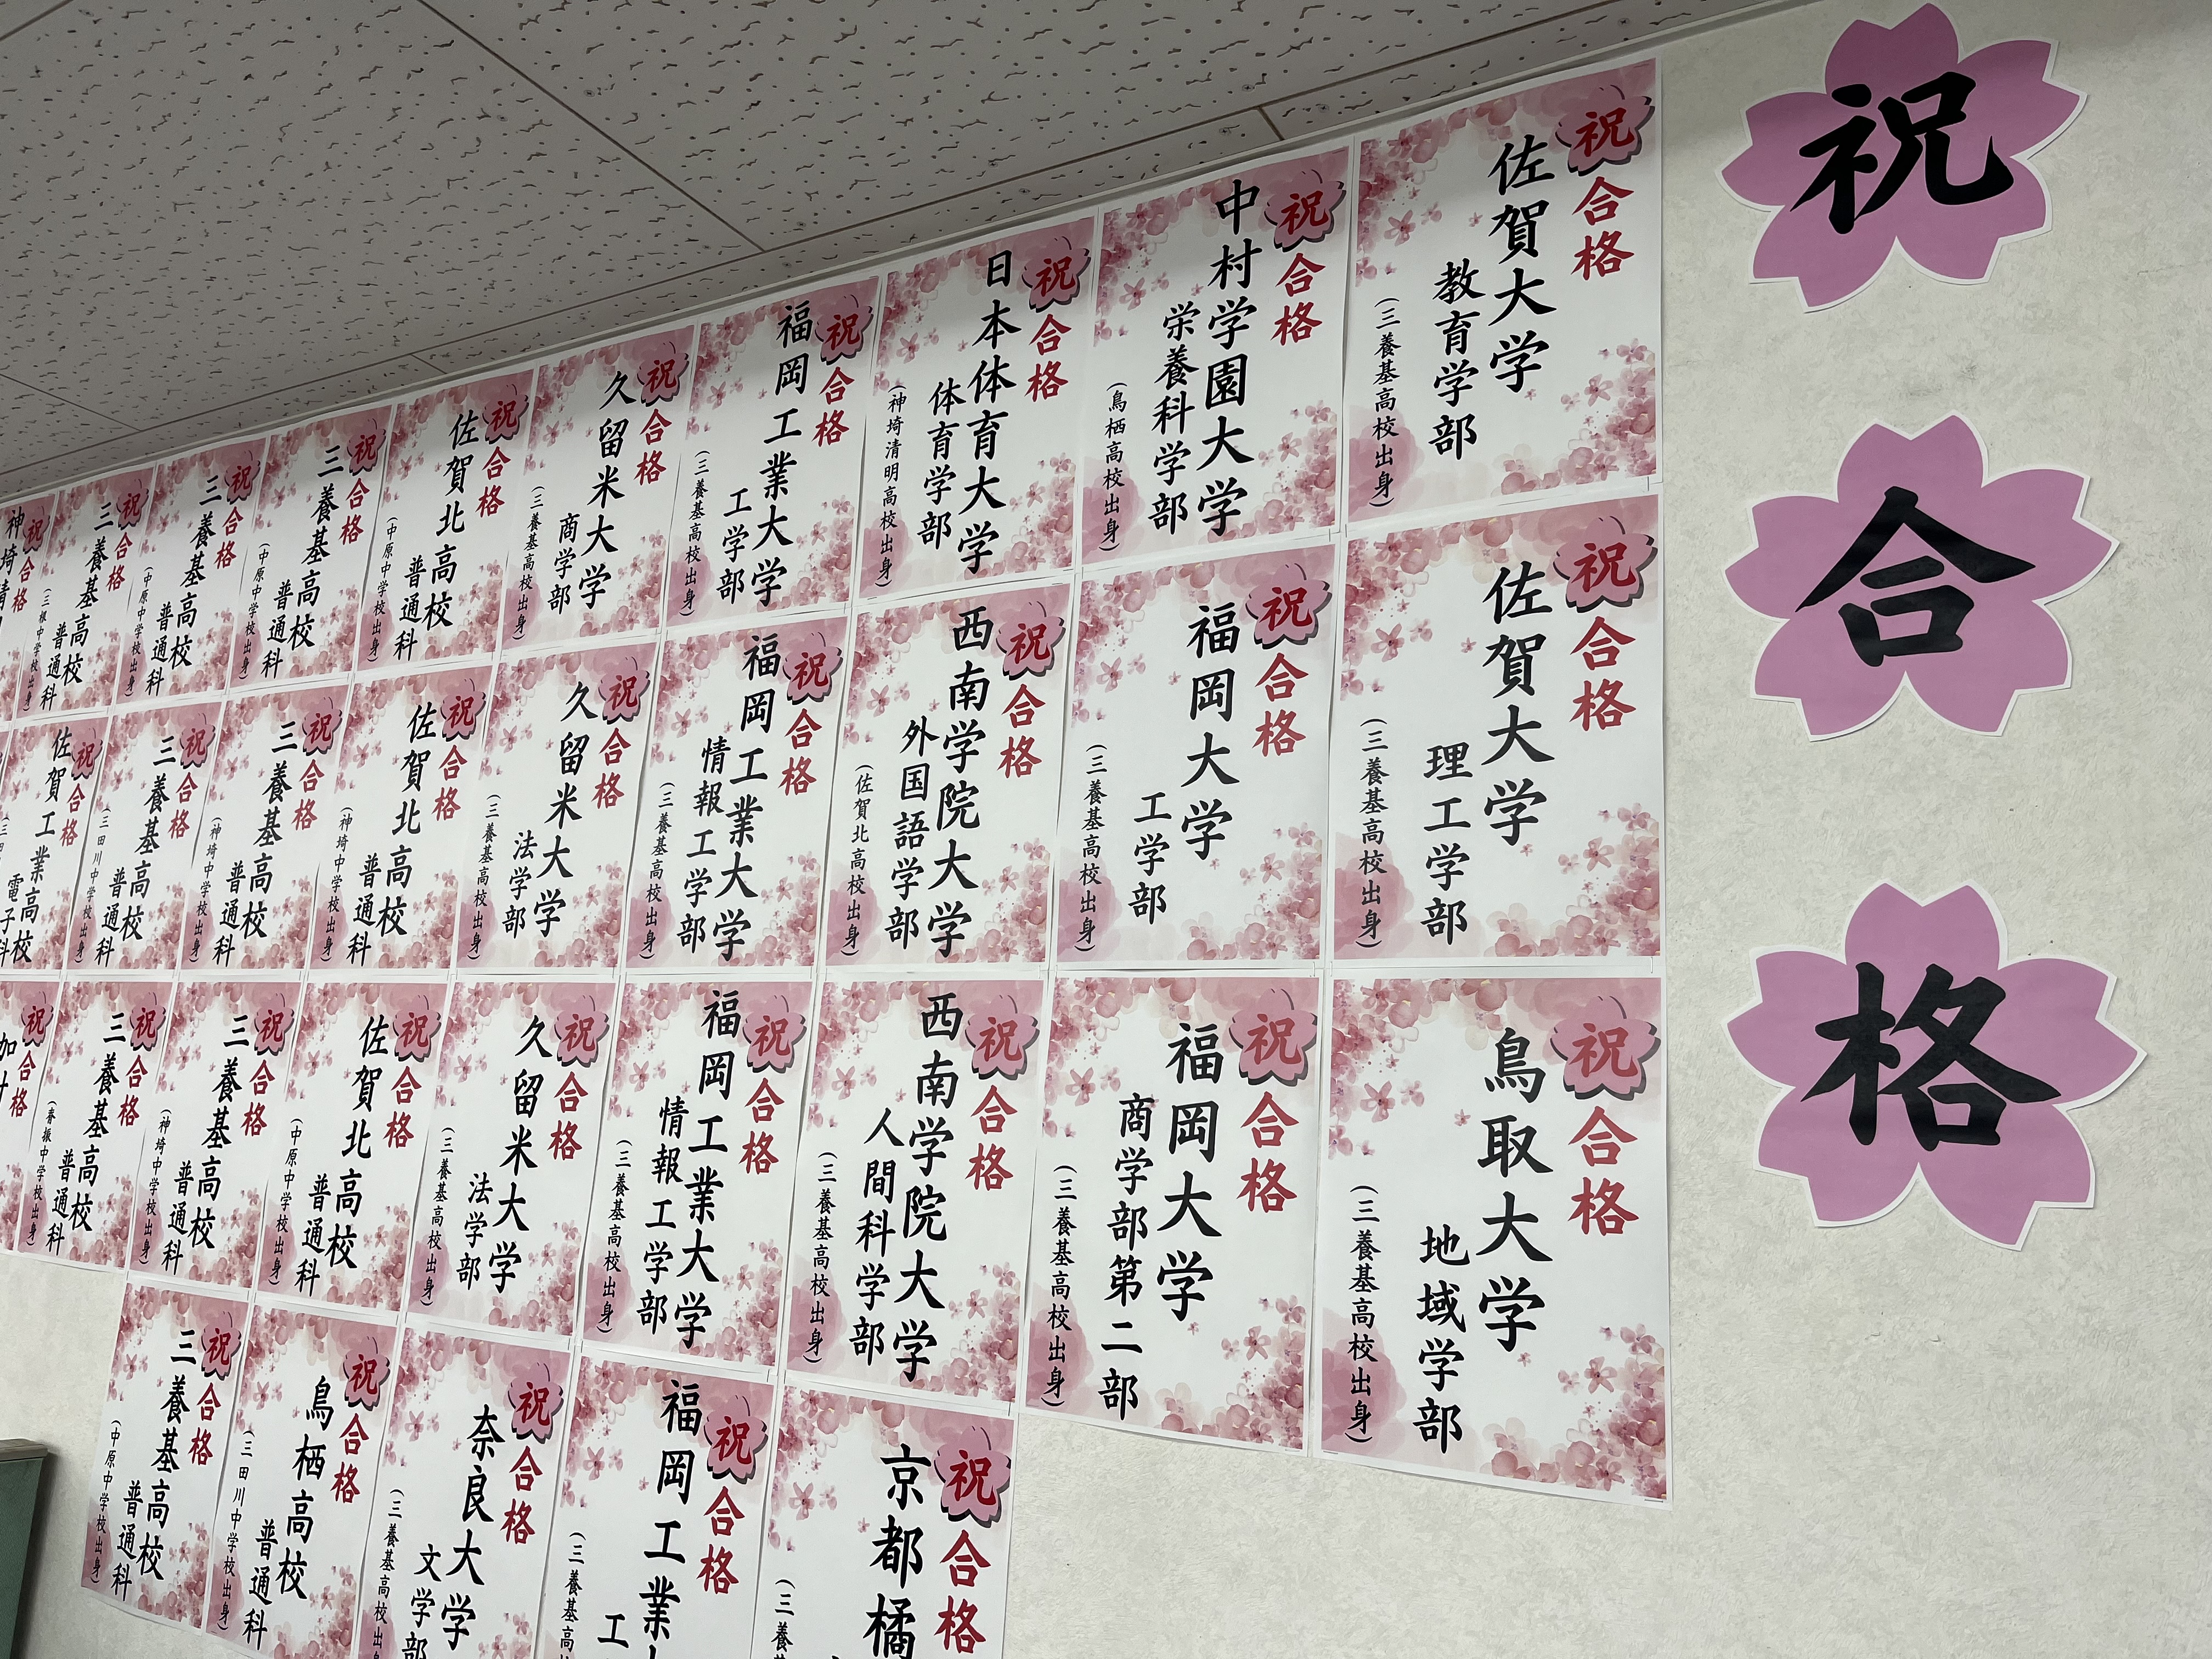 祝
合
格
祝合格
佐賀大学
教育学部
(三養基高校出身)
祝合格
中村学園大学
栄養科学部
(鳥栖高校出身)
祝合格
日本体育大学
体育学部
(神埼清明高校出身)
祝合格
福岡工業大学
工学部
(三養基高校出身)
祝合格
久留米大学
商学部
(三養基高校出身)
祝合格
佐賀北高校
普通科
(中原中学校出身)
祝合格
三養基高校
普通科
(中原中学校出身)
祝合格
三養基高校
普通科
(中原中学校出身)
祝合格
三養基高校
普通科
(三根中学校出身)
祝合格
神埼清
祝合格
佐賀大学
理工学部
(三養基高校出身)
祝合格
福岡大学
工学部
(三養基高校出身)
祝合格
西南学院大学
外国語学部
(佐賀北高校出身)
祝合格
福岡工業大学
情報工学部
(三養基高校出身)
祝合格
久留米大学
法学部
(三養基高校出身)
祝合格
佐賀北高校
普通科
(神埼中学校出身)
祝合格
三養基高校
普通科
(神埼中学校出身)
祝合格
三養基高校
普通科
(三田川中学校出身)
祝合格
佐賀工業高校
電子科
祝合格
鳥取大学
地域学部
(三養基高校出身)
祝合格
福岡大学
商学部第二部
(三養基高校出身)
祝合格
西南学院大学
人間科学部
(三養基高校出身)
祝合格
福岡工業大学
情報工学部
(三養基高校出身)
祝合格
久留米大学
法学部
(三養基高校出身)
祝合格
佐賀北高校
普通科
(中原中学校出身)
祝合格
三養基高校
普通科
(神埼中学校出身)
祝合格
三養基高校
普通科
(脊振中学校出身)
祝合格
祝合格
京都橘
(三養
祝合格
福岡工業
工
(三養基高
祝合格
奈良大学
文学部
(三養基高校出
祝合格
鳥栖高校
普通科
(三田川中学校出身)
祝合格
三養基高校
普通科
(中原中学校出身)